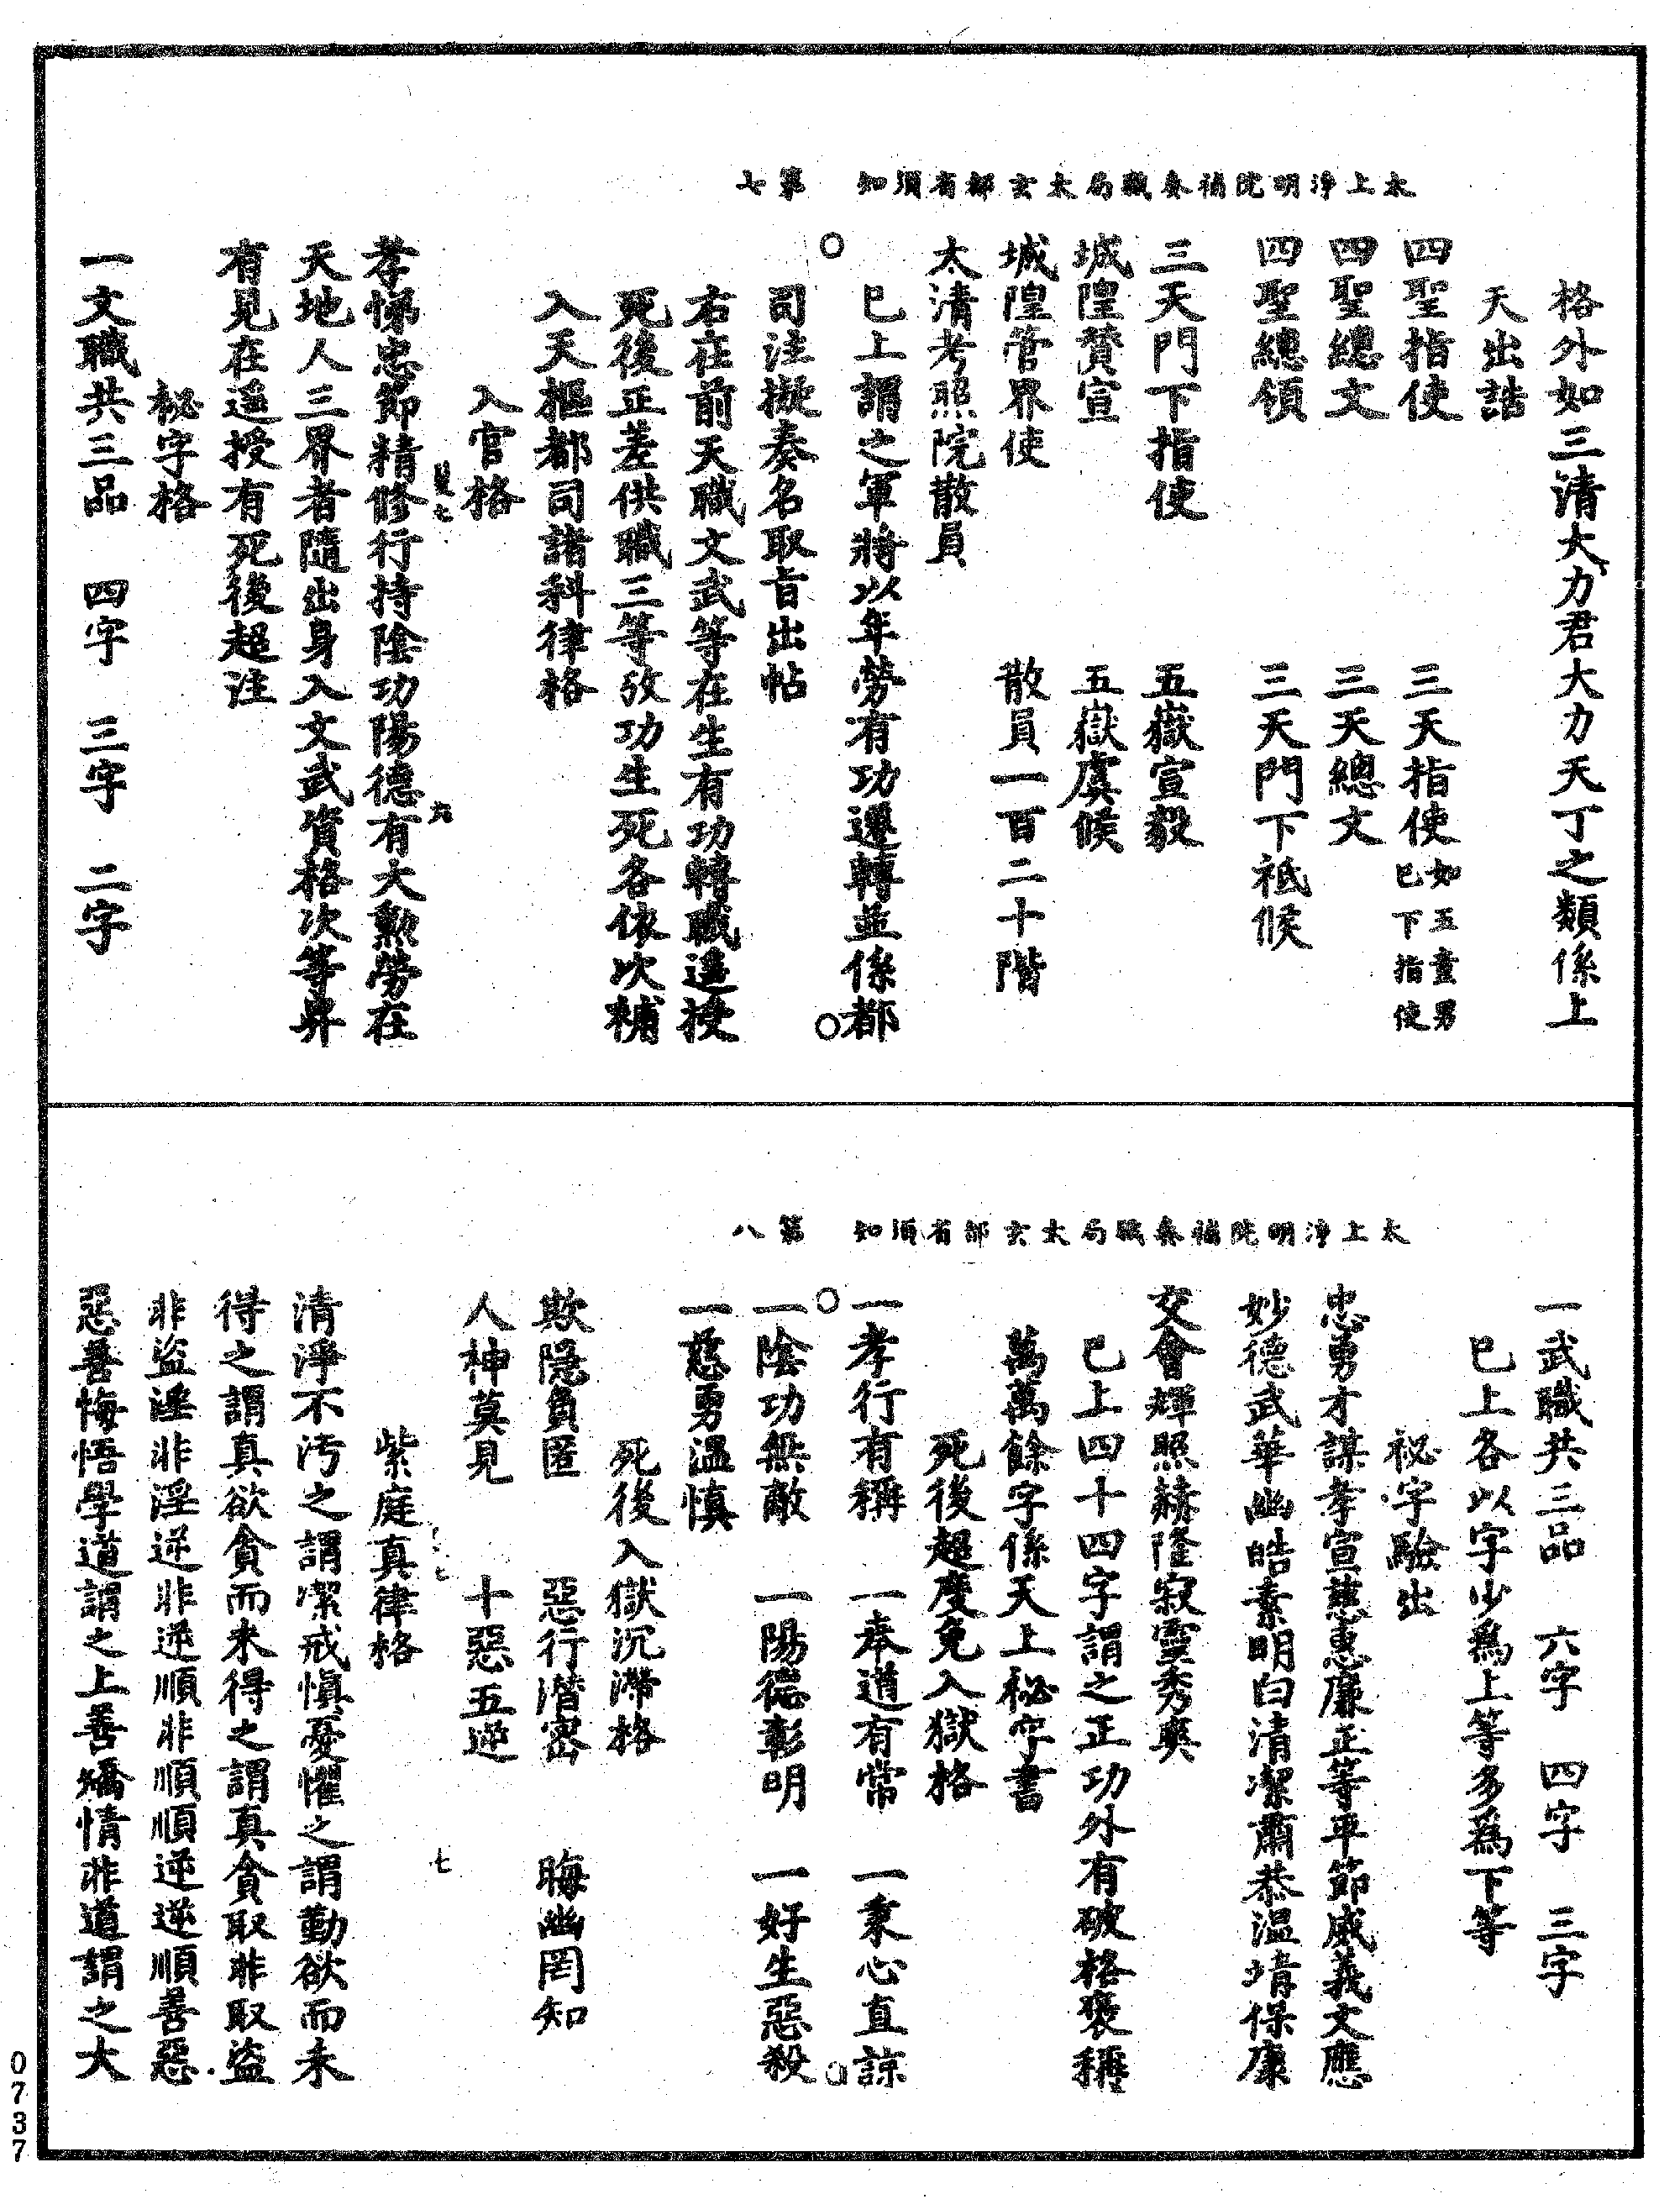 太上淨明院補奏職局太玄都省須知　第七
格外如三清大力君大力天丁之類係上
天出誥
四聖指使　三天指使如五童男已下指使
四聖總文　三天總文
四聖總領　三天門下祗候
三天門下指使　五嶽宣毅
城隍贊宣　五嶽虞候
城隍管界使　散員一百二十階
太清考照院散員
已上謂之軍將以年勞有功遷轉並係都
司注擬奏名取旨出帖
右在前天職文武等在生有功轉職遙授
死後正差供職三等攷功生死各依次補
入天樞都司諸科律格
入官格
孝悌忠節精修行持陰功陽德有大勲勞在
天地人三界者隨出身入文武資格次等昇
有見在遥授有死後超注
秘字格
一文職共三品　四字　三字　二字
六
太上淨明院補奏職局太玄都省須知　第八
一武職共三品　六字　四字　三字
已上各以字少為上等多為下等
祕字驗出
忠勇才謀孝宣慈惠廉正等平節威義文應
妙德武華幽皓素明白清潔肅恭温靖保康
交會輝照赫隆寂靈秀爽
已上四十四字謂之正功外有破格褒稱
萬萬餘字係天上秘字書
死後超度免入獄格
一孝行有稱　一奉道有常　一秉心直諒
一陰功無敵　一陽德彰明　一好生惡殺
一慈勇溫慎
死後入獄沉滯格
欺隱負匿　惡行潛密　晦幽罔知
人神莫見　十惡五逆
紫庭真律格
清淨不汚之謂潔戒慎憂懼之謂勤欲而未
得之謂真欲貪而未得之謂真貪取非取盜
非盜淫非淫逆非逆順非順順逆逆順善惡
惡善悔悟學道謂之上善矯情非道謂之大
七
0737